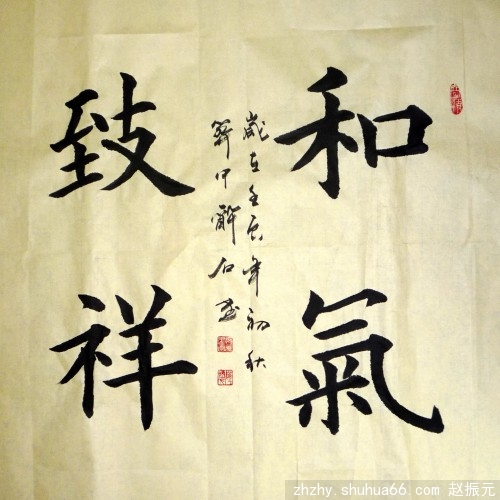 和氣
致祥
歲在壬寅年初秋
石
zhzhy.shuhua66.com 赵振元